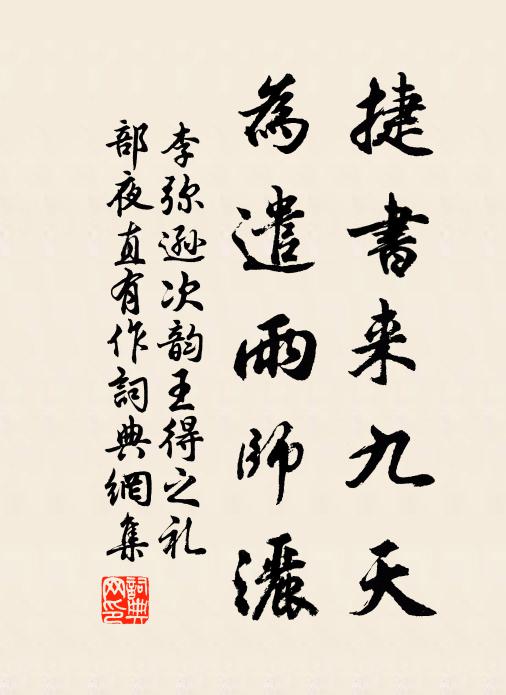 捷書来九天
為遣雨師灑
李弥遜次韵王得之礼
部夜直有作詞典網集
詞典網印